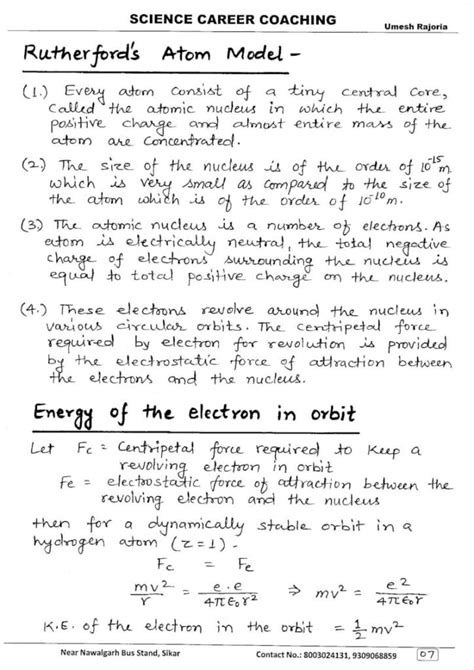 SCIENCE CAREER COACHING
Umesh Rajoria
Rutherford's Atom Model -
(1.) Every atom consist of a tiny central core,
called the atomic nucleus in which the entire
positive charge and almost entire mass of the
atom are concentrated.
(2.) The size of the nucleus is of the order of 10⁻¹⁵m
which is very small as compared to the size of
the atom which is of the order of 10⁻¹⁰m.
(3.) The atomic nucleus is a number of electrons. As
atom is electrically neutral, the total negative
charge of electrons surrounding the nucleus is
equal to total positive charge on the nucleus.
(4.) These electrons revolve around the nucleus in
various circular orbits. The centripetal force
required by electron for revolution is provided
by the electrostatic force of attraction between
the electrons and the nucleus.
Energy of the electron in orbit
Let Fc = Centripetal force required to keep a
revolving electron in orbit
Fe = electrostatic force of attraction between the
revolving electron and the nucleus
then for a dynamically stable orbit in a
hydrogen atom (z=1) -
Fc = Fe
mv²/r = e.e/4πε₀r² ⇒ mv² = e²/4πε₀r
K.E. of the electron in the orbit = 1/2 mv²
Near Nawalgarh Bus Stand, Sikar
Contact No.: 8003024131, 9309068859
07